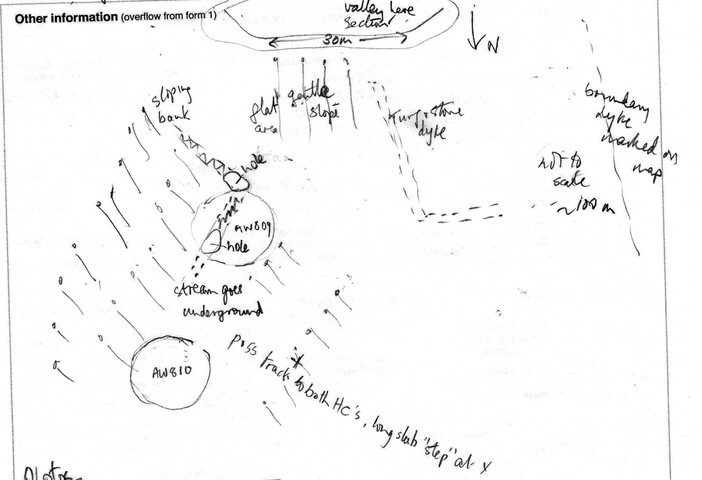 Other information (overflow from form 1)
valley here
section
30m
N
sloping
bank
flat
area
gentle
slope
stone
dyke
boundary
dyke
marked on
map
not to
scale
~100m
hole
AW809
hole
stream goes
underground
AW810
poss track to both HC's, long slab "step" at x